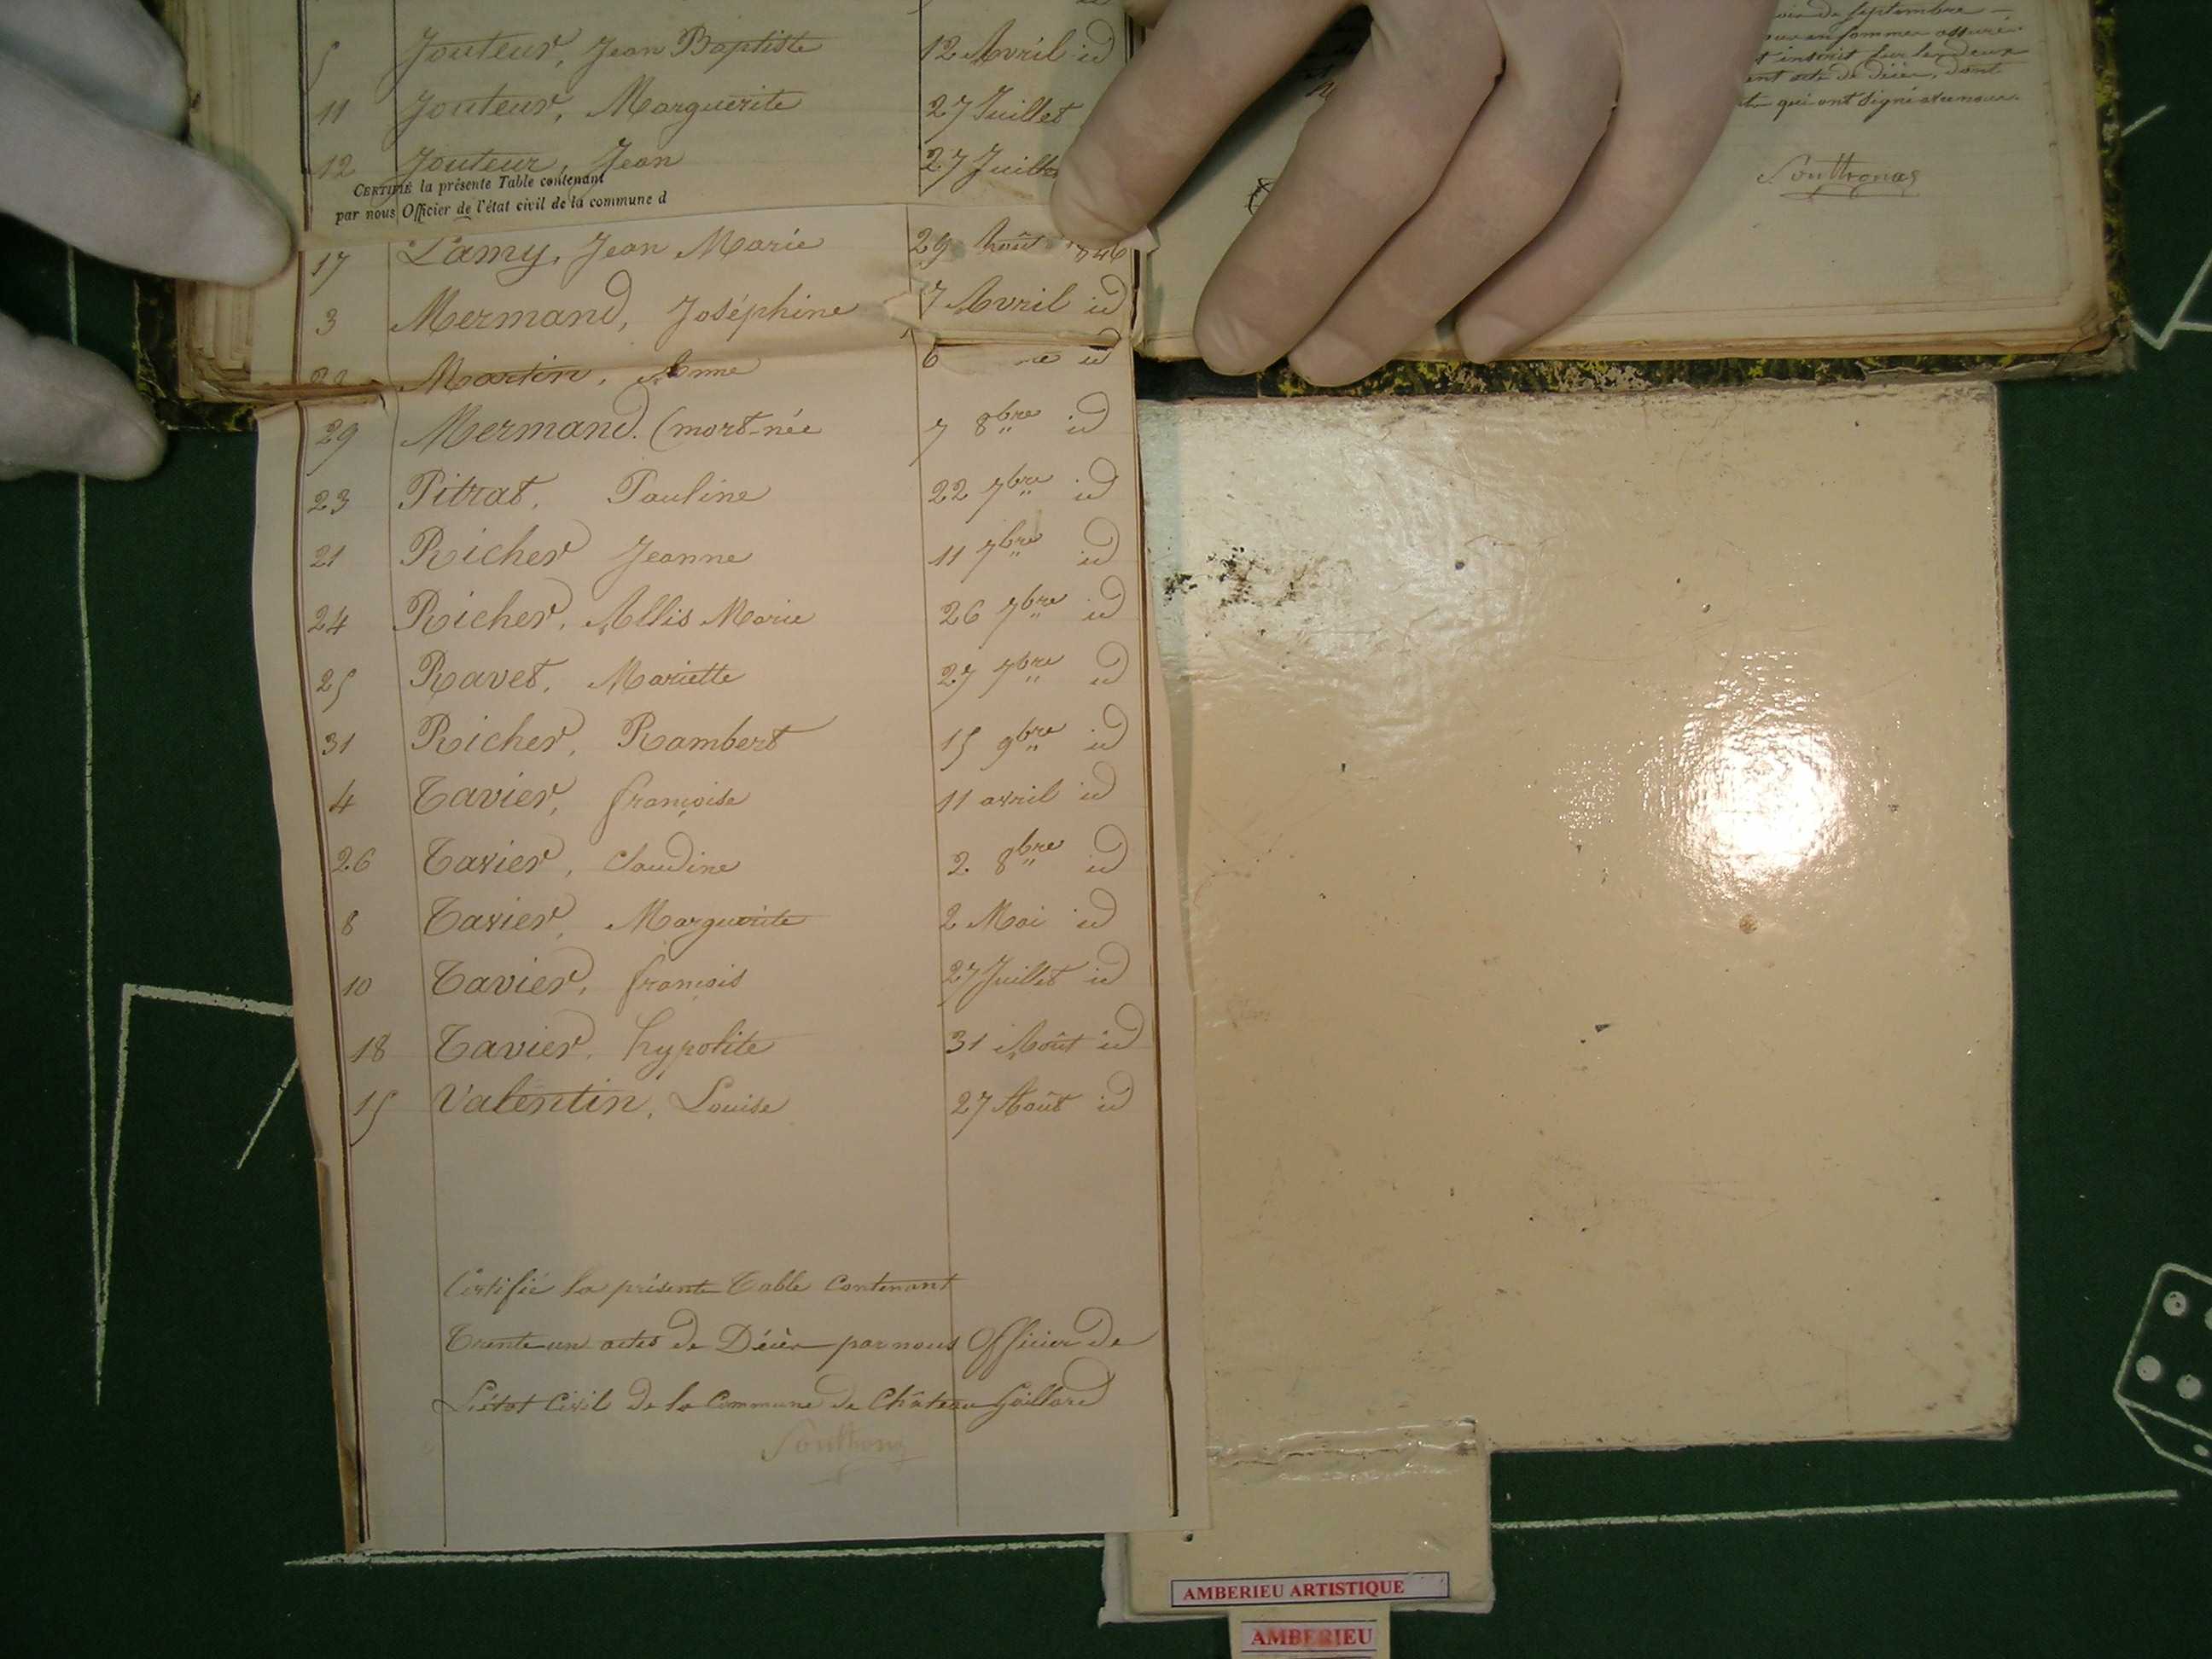 5 Jouteur, Jean Baptiste 12 Avril id
11 Jouteur, Marguerite 27 Juillet
12 Jouteur, Jean 27 Juillet
CERTIFIÉ la présente Table contenant
par nous Officier de l'état civil de la commune d
17 Lamy, Jean Marie 29 Août 1846
3 Mermand, Joséphine 7 Avril id
Martin, Anne 6 id
29 Mermand. (mort-née 7 8bre id
23 Pitrat, Pauline 22 7bre id
21 Richer Jeanne 11 7bre id
24 Richer, Allis Marie 26 7bre id
25 Ravet, Mariette 27 7bre id
31 Richer, Rambert 15 9bre id
4 Tavier, françoise 11 avril id
26 Tavier, Claudine 2 8bre id
8 Tavier, Marguerite 2 Mai id
10 Tavier, françois 27 Juillet id
18 Tavier, hypolite 31 Août id
15 Valentin, Louise 27 Août id
Certifié la présente Table Contenant
Trente un actes de Décès par nous Officier de
L'état Civil de la Commune de Château Gaillard
de Septembre
assuré
inscrit sur les deux
acte de décès, dont
qui ont signé avec nous.
AMBERIEU ARTISTIQUE
AMBERIEU